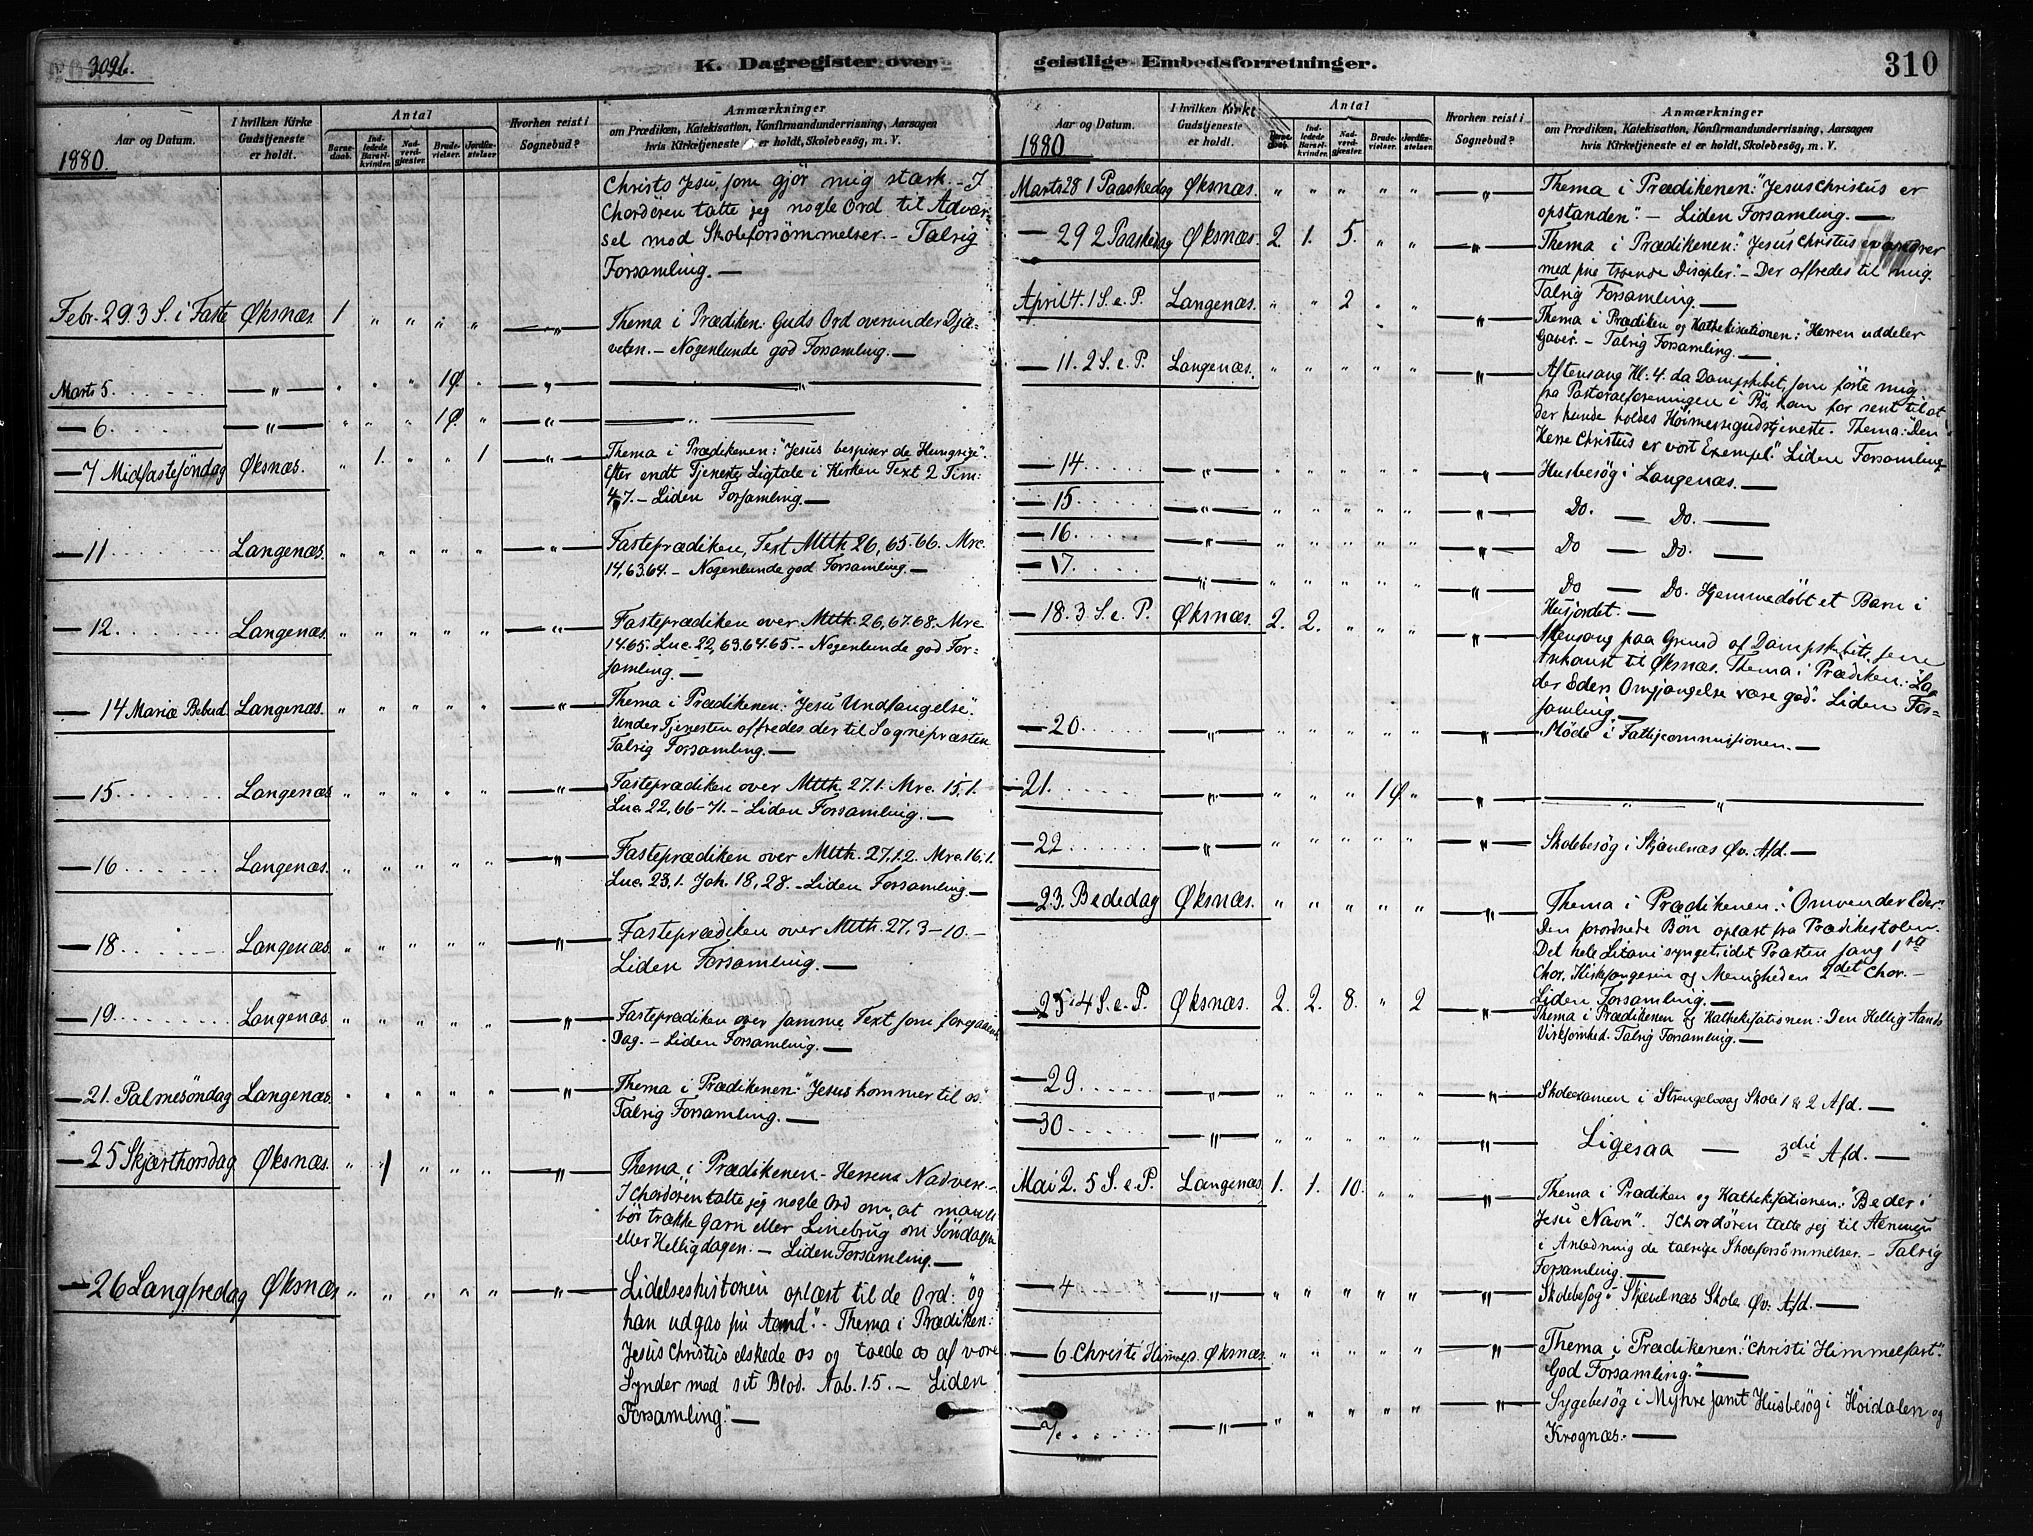 309b.
K. Dagregister over
Aar og Datum.
I hvilken Kirke Gudstjeneste er holdt.
Antal
Barsedaab.
Indledede Barselkvinder.
Nadverdgjæster.
Brudevielser.
Jordfæstelser
Hvorhen reist i Sognebud?
Anmærkninger
om Prædiken, Katekisation, Konfirmandundervisning, Aarsagen
hvis Kirketjeneste ei er holdt, Skolebesøg, m. V.
1880.
Christo Jesu, som gjör mig stærk. - I
Chordören talte jeg nogle Ord til Advar-
sel mod Skoleforsömmelser. - Talrig
Forsamling. —
Febr. 29. 3 S. i Faste Øksnæs. 1 " " " " — " — Thema i Prædiken: Guds Ord overvinder Djæ-
velen. - Nogenlunde god Forsamling. —
Marts 5. — " — " " " 1Ø " — " — — " —
— 6 — " — " " " 1Ø " — " — — " —
— 7 Midfastesöndag Øksnæs. " 1. " " 1 — " — Thema i Prædikenen: "Jesus bespiser de Hungrige".
Efter endt Tjeneste Ligtale i Kirken Text 2 Tim:
4,7. - Liden Forsamling. —
— 11 Langenæs. " " " " " — " — Fasteprædiken, Text Mtth. 26, 65-66. Mrc.
14,63.64. - Nogenlunde god Forsamling. —
— 12. Langenæs. " " " " " — " — Fasteprædiken over Mtth. 26, 67.68. Mrc
14.65. Luc. 22, 63.64.65. - Nogenlunde god For-
samling. —
— 14 Mariæ Bebud. Langenæs. " " " " " — " — Thema i Prædikenen: "Jesu Undfangelse".
Under Tjenesten offredes der til Sognepræsten
Talrig Forsamling. —
— 15 Langenæs " " " " " — " — Fasteprædiken over Mtth. 27.1. Mrc. 15.1.
Luc. 22, 66-71. - Liden Forsamling. —
— 16 Langenæs. " " " " " — " — Fasteprædiken over Mtth. 27.1.2. Mrc. 16.1.
Luc. 23.1. Joh. 18, 28. - Liden Forsamling —
— 18 Langenæs. " " " " " — " — Fasteprædiken over Mtth. 27. 3-10. -
Liden Forsamling. —
— 19. Langenæs. " " " " " — " — Fasteprædiken over samme Text som forgaaende
Dag. - Liden Forsamling. —
— 21. Palmesöndag Langenæs. " " " " " — " — Thema i Prædikenen: "Jesus kommer til os".
Talrig Forsamling. —
— 25 Skjærthorsdag Øksnæs. " 1 " " " — " — Thema i Prædikenen - Herrens Nadvere. -
I Chordören talte jeg nogle Ord om, at man ei
bör trække Garn eller Linebrug om Söndagen
eller Helligdagen. - Liden Forsamling. —
— 26 Langfredag Øksnæs " " " " " — " — Lidelseshistorien oplæst til de Ord: "og
han udgav sin Aand". - Thema i Prædiken:
Jesus Christus elskede os og toede os af vore
Synder med sit Blod. Aab. 1.5. - Liden
Forsamling." —
geistlige Embedsforretninger.
310
Aar og Datum.
I hvilken Kirke Gudstjeneste er holdt.
Antal
Indledede Barselkvinder.
Nadverdgjæster.
Brudevielser.
Jordfæstelser.
Hvorhen reist i Sognebud?
Anmærkninger
om Prædiken, Katekisation, Konfirmandundervisning, Aarsagen
hvis Kirketjeneste ei er holdt, Skolebesøg, m. V.
1880
Marts 28 1 Paaskedag Øksnæs. " " " " " — " — Thema i Prædikenen: "Jesus Christus er
opstanden". - Liden Forsamling. —
— 29 2 Paaskedag Øksnæs. 2. 1. 5. " " — " — Thema i Prædikenen: "Jesus Christus vandrer
med sine troende Disciple". - Der offredes til mig.
Talrig Forsamling. —
April 4. 1 S. e. P. Langenæs. " " 2 " " — " — Thema i Prædiken og Kathekisationen: "Herren uddeler
Gaver. - Talrig Forsamling. —
— 11. 2 S. e. P. Langenæs. " " " " " — " — Aftensang Kl. 4. da Dampskibet, som förte mig
fra Pastoralforeningen i Bö, kom for sent til at
der kunde holdes Höimessegudstjeneste. Thema: "Den
Herre Christus er vort Exempel." Liden Forsamling
— 14 — " — " " " " " — " — Husbesög i Langenæs. —
— 15 — " — " " " " " — " — Do. — Do. —
— 16 — " — " " " " " — " — Do — Do. —
— 17. — " — " " " " " — " — Do — Do. Hjemmedöbt et Barn i
Husjordet. —
— 18. 3 S. e. P. Øksnæs. 2. 2. " " " — " — Aftensang paa Grund af Dampskibets sene
Ankomst til Øksnæs. Thema i Prædiken: "La-
der Eders Omgjængelse være god". Liden For-
samling. —
— 20. — " — " " " " " — " — Möde i Fattigcommissionen. —
— 21. — " — " " " 1Ø " — " — — " —
— 22 — " — " " " " " — " — Skolebesög i Skjævlnæs Öv. Afd. —
— 23. Bededag Øksnæs. " " " " " — " — Thema i Prædikenen: "Omvender Eder".
Den forordnede Bön oplæst fra Prædikestolen.
Det hele Litani synget, idet Præsten sang 1ste
Chor, Kirkesangeren og Menigheden 2det Chor. -
Liden Forsamling. —
— 25 4 S. e. P. Øksnæs. 2. 2. 8. " 2 — " — Thema i Prædikenen og Kathekisationen: Den Hellig Aands
Virksomhed. Talrig Forsamling. —
— 29 — " — " " " " " — " — Skoleexamen i Strengelvaag Skole 1 & 2 Afd. —
— 30 — " — " " " " " — " — Ligesaa — 3die Afd. —
Mai 2. 5 S. e. P. Langenæs 1. 1. 10. " " — " — Thema i Prædiken og Kathekisationen: "Beder i
Jesu Navn". I Chordören talte jeg til Almuen
i Anledning de talrige Skoleforsömmelser. - Talrig
Forsamling. —
— 4 — " — " " " " " — " — Skolebesög i Skjævelnæs Skole Öv. Afd. —
— 6 Christi Himmelf. Øksnæs. " " " " " — " — Thema i Prædikenen: "Christi Himmelfart".
God Forsamling." —
— " — " " " " " — " — Sygebesög i Myhre samt Husbesög i Höidalen og
Krognæs. —